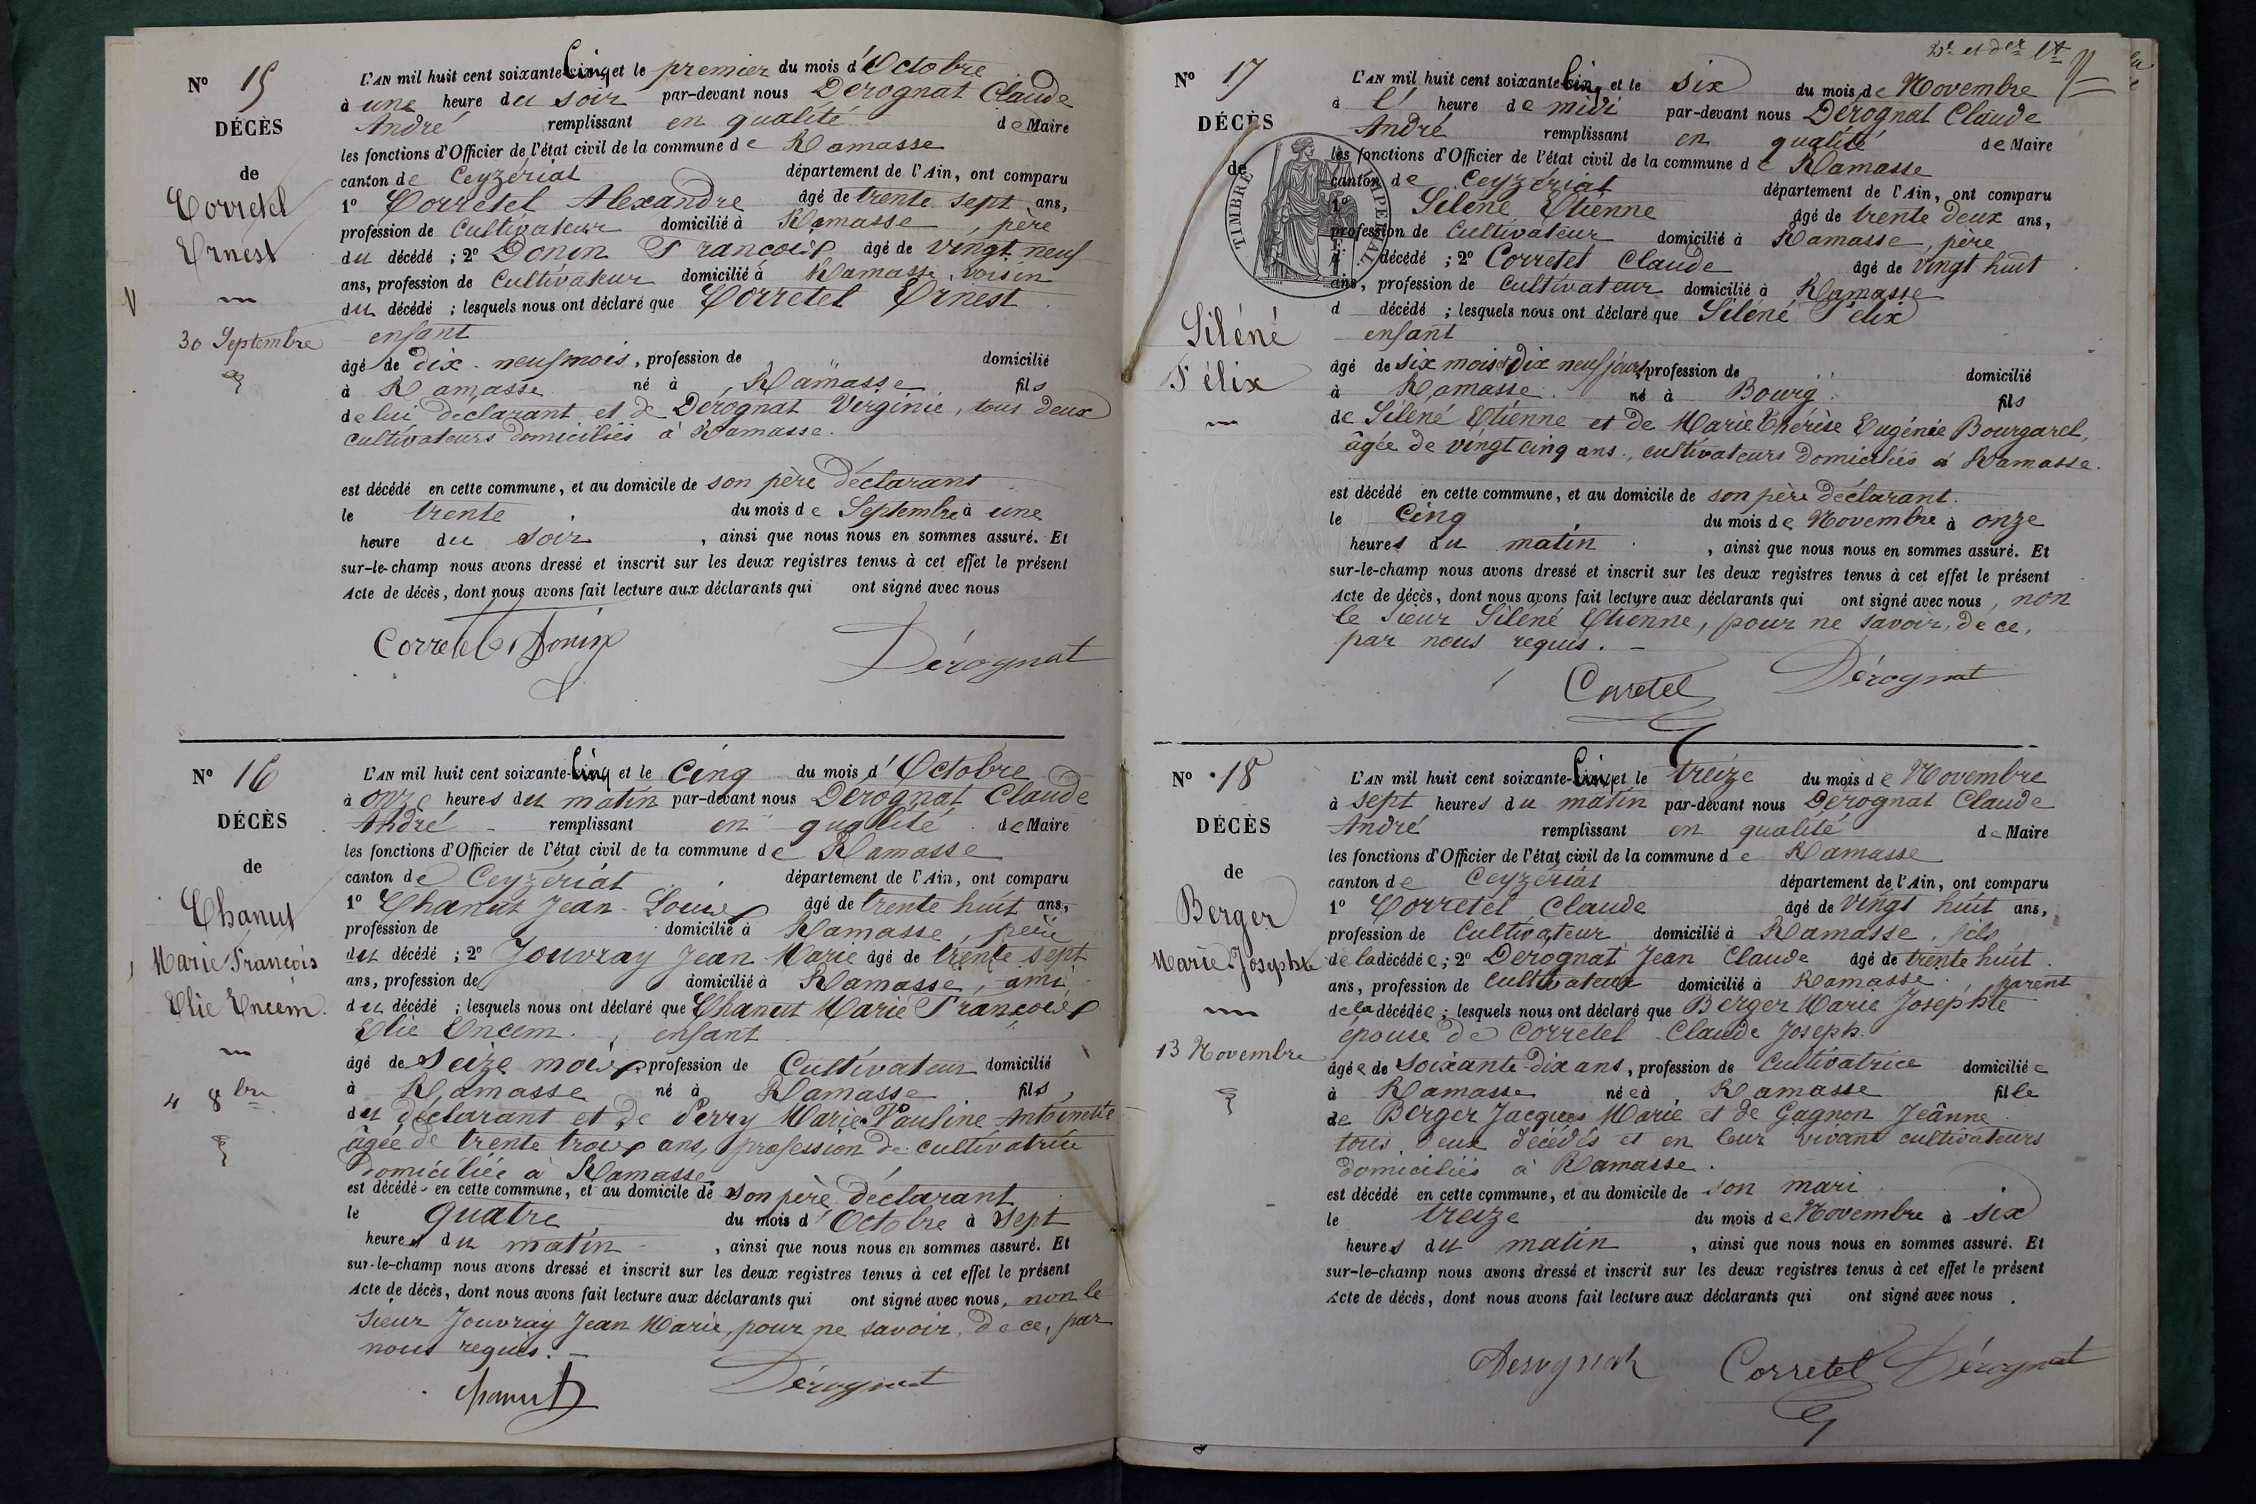 Nº 15
DÉCÈS
de
Corretel
Ernest
30 Septembre
L'AN mil huit cent soixante-Cinq et le premier du mois d'Octobre
à une heure du soir par-devant nous Dérognat Claude
André remplissant en qualité de Maire
les fonctions d'Officier de l'état civil de la commune de Ramasse
canton de Ceyzériat département de l'Ain, ont comparu
1º Corretel Alexandre âgé de trente sept ans,
profession de Cultivateur domicilié à Ramasse père
du décédé ; 2º Donin François âgé de vingt neuf
ans, profession de Cultivateur domicilié à Ramasse, voisin
du décédé ; lesquels nous ont déclaré que Corretel Ernest
enfant
âgé de dix-neuf mois, profession de domicilié
à Ramasse né à Ramasse fils
de lui déclarant et de Dérognat Virginie, tous deux
cultivateurs domiciliés à Ramasse.
est décédé en cette commune, et au domicile de son père déclarant
le trente du mois de Septembre à une
heure du soir, ainsi que nous nous en sommes assuré. Et
sur-le-champ nous avons dressé et inscrit sur les deux registres tenus à cet effet le présent
Acte de décès, dont nous avons fait lecture aux déclarants qui ont signé avec nous
Corretel Donin Dérognat
Nº 16
DÉCÈS
de
Chanut
Marie François
Elie Encem.
4 8bre
L'AN mil huit cent soixante-Cinq et le Cinq du mois d'Octobre
à onze heures du matin par-devant nous Dérognat Claude
André remplissant en qualité de Maire
les fonctions d'Officier de l'état civil de la commune de Ramasse
canton de Ceyzériat département de l'Ain, ont comparu
1º Chanut Jean-Louis âgé de trente huit ans,
profession de domicilié à Ramasse, père
du décédé ; 2º Jouvray Jean Marie âgé de trente sept
ans, profession de domicilié à Ramasse, ami
du décédé ; lesquels nous ont déclaré que Chanut Marie François
Elie Encem, enfant
âgé de Seize mois profession de Cultivateur domicilié
à Ramasse né à Ramasse fils
du déclarant et de Perry Marie Pauline Antoinette
âgée de trente trois ans, profession de cultivatrice
domiciliée à Ramasse
est décédé en cette commune, et au domicile de son père déclarant
le quatre du mois d'Octobre à sept
heures du matin, ainsi que nous nous en sommes assuré. Et
sur-le-champ nous avons dressé et inscrit sur les deux registres tenus à cet effet le présent
Acte de décès, dont nous avons fait lecture aux déclarants qui ont signé avec nous, non le
sieur Jouvray Jean Marie, pour ne savoir, de ce, par
nous requis.
Chanut Dérognat
Nº 17
DÉCÈS
de
TIMBRE IMPÉRIAL
Siléné
Félix
L'AN mil huit cent soixante-Cinq et le six du mois de Novembre
à l' heure de midi par-devant nous Dérognat Claude
André remplissant en qualité de Maire
les fonctions d'Officier de l'état civil de la commune de Ramasse
canton de Ceyzériat département de l'Ain, ont comparu
1º Siléné Etienne âgé de trente deux ans,
profession de Cultivateur domicilié à Ramasse, père
d décédé ; 2º Corretel Claude âgé de vingt huit
ans, profession de Cultivateur domicilié à Ramasse
d décédé ; lesquels nous ont déclaré que Siléné Félix
enfant
âgé de six mois et dix neuf jours, profession de domicilié
à Ramasse. né à Bourg fils
de Siléné Etienne et de Marie Thérèse Eugénie Bourgarel,
âgée de vingt cinq ans, cultivateurs domiciliés à Ramasse.
est décédé en cette commune, et au domicile de son père déclarant.
le Cinq du mois de Novembre à onze
heures du matin, ainsi que nous nous en sommes assuré. Et
sur-le-champ nous avons dressé et inscrit sur les deux registres tenus à cet effet le présent
Acte de décès, dont nous avons fait lecture aux déclarants qui ont signé avec nous, non
le Sieur Siléné Etienne, pour ne savoir, de ce,
par nous requis.
Corretel Dérognat
Nº 18
DÉCÈS
de
Berger
Marie Josephte
13 Novembre
L'AN mil huit cent soixante-Cinq et le treize du mois de Novembre
à sept heures du matin par-devant nous Dérognat Claude
André remplissant en qualité de Maire
les fonctions d'Officier de l'état civil de la commune de Ramasse
canton de Ceyzériat département de l'Ain, ont comparu
1º Corretel Claude âgé de vingt huit ans,
profession de Cultivateur domicilié à Ramasse, fils
de la décédée ; 2º Dérognat Jean Claude âgé de trente huit
ans, profession de Cultivateur domicilié à Ramasse parent
de la décédée ; lesquels nous ont déclaré que Berger Marie Josephte
épouse de Corretel Claude Joseph.
âgée de Soixante-dix ans, profession de Cultivatrice domiciliée
à Ramasse née à Ramasse fille
de Berger Jacques Marie et de Gagnon Jeânne
tous deux décédés et en leur vivant cultivateurs
domiciliés à Ramasse.
est décédé en cette commune, et au domicile de son mari
le treize du mois de Novembre à six
heures du matin, ainsi que nous nous en sommes assuré. Et
sur-le-champ nous avons dressé et inscrit sur les deux registres tenus à cet effet le présent
Acte de décès, dont nous avons fait lecture aux déclarants qui ont signé avec nous.
Derognat Corretel Dérognat